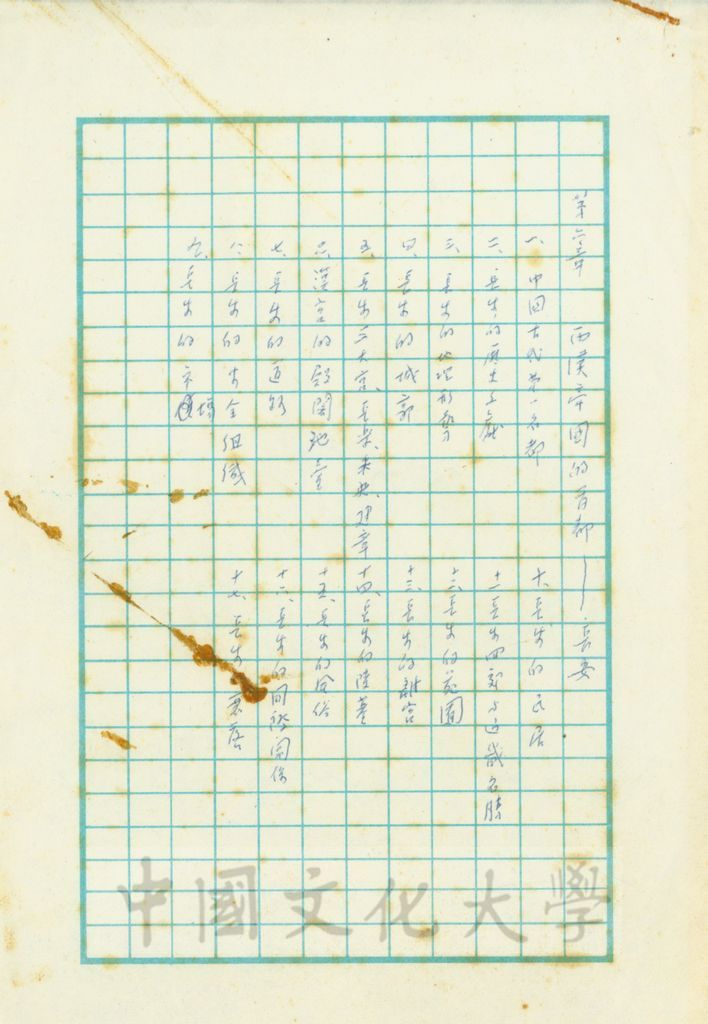 第六章　西漢帝國的首都——長安
一、中國古代第一名都
二、長安的歷史文獻
三、長安的地理形勢
四、長安的城郭
五、長安三大宮、長樂、未央、建章
六、漢宮的殿閣池臺
七、長安的道路
八、長安的安全組織
九、長安的市場
十、長安的民居
十一、長安四郊與近畿名勝
十二、長安的苑園
十三、長安的離宮
十四、長安的陵墓
十五、長安的風俗
十六、長安的國際關係
十七、長安　衰落
中國文化大學